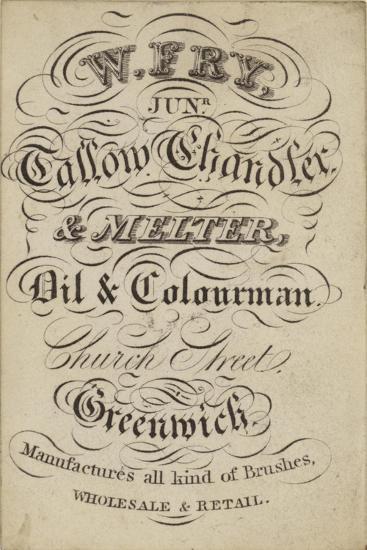 W. FRY,
JUNR.
Tallow Chandler,
& MELTER,
Oil & Colourman.
Church Street,
Greenwich.
Manufactures all kind of Brushes,
WHOLESALE & RETAIL.